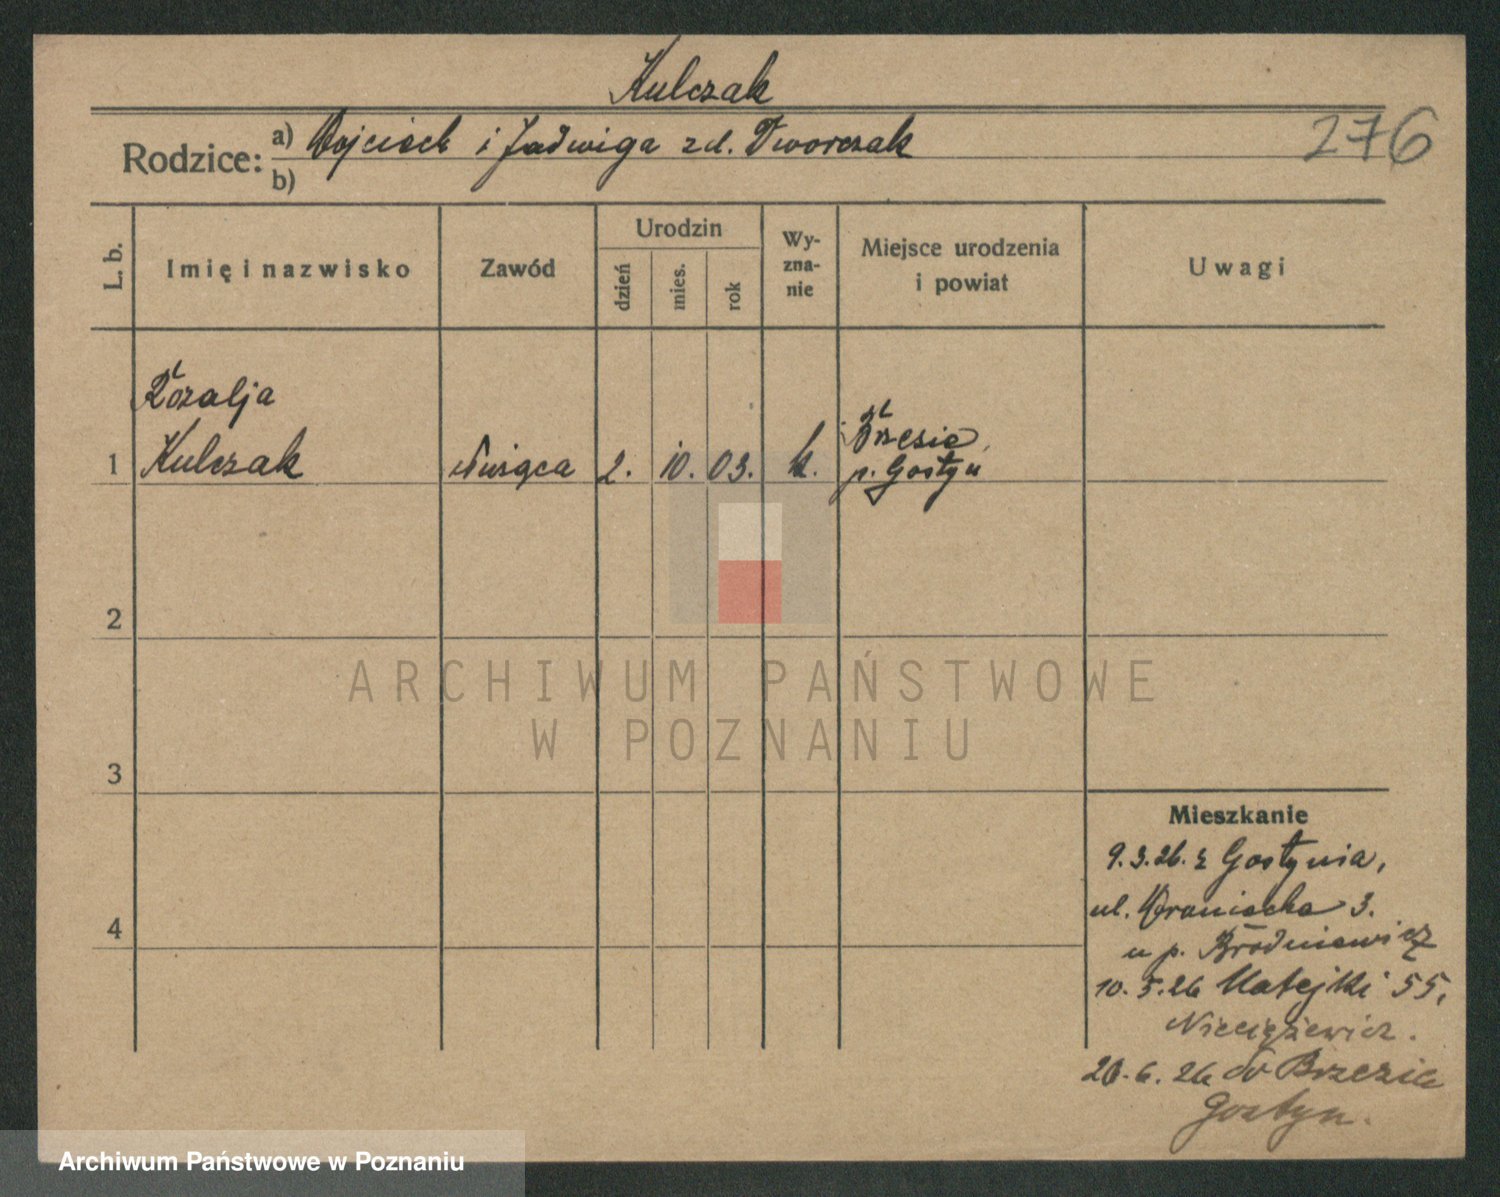 Kulczak
276
Rodzice: a) Wojciech i Jadwiga zd. Dworczak
b)
L. b.
Imię i nazwisko
Zawód
Urodzin
dzień
mies.
rok
Wy-
zna-
nie
Miejsce urodzenia
i powiat
Uwagi
Rozalja
1 Kulczak służąca 2. 10. 03. k. Brzezie
p. Gostyń
2
3
4
ARCHIWUM PAŃSTWOWE
W POZNANIU
Mieszkanie
9.3.26. z Gostynia,
ul. 3.
u p. Brodniewicz
10.5.26 Matejki 55,
Nieciężewicz.
26.6.26 do Brzezie
Gostyn.
Archiwum Państwowe w Poznaniu